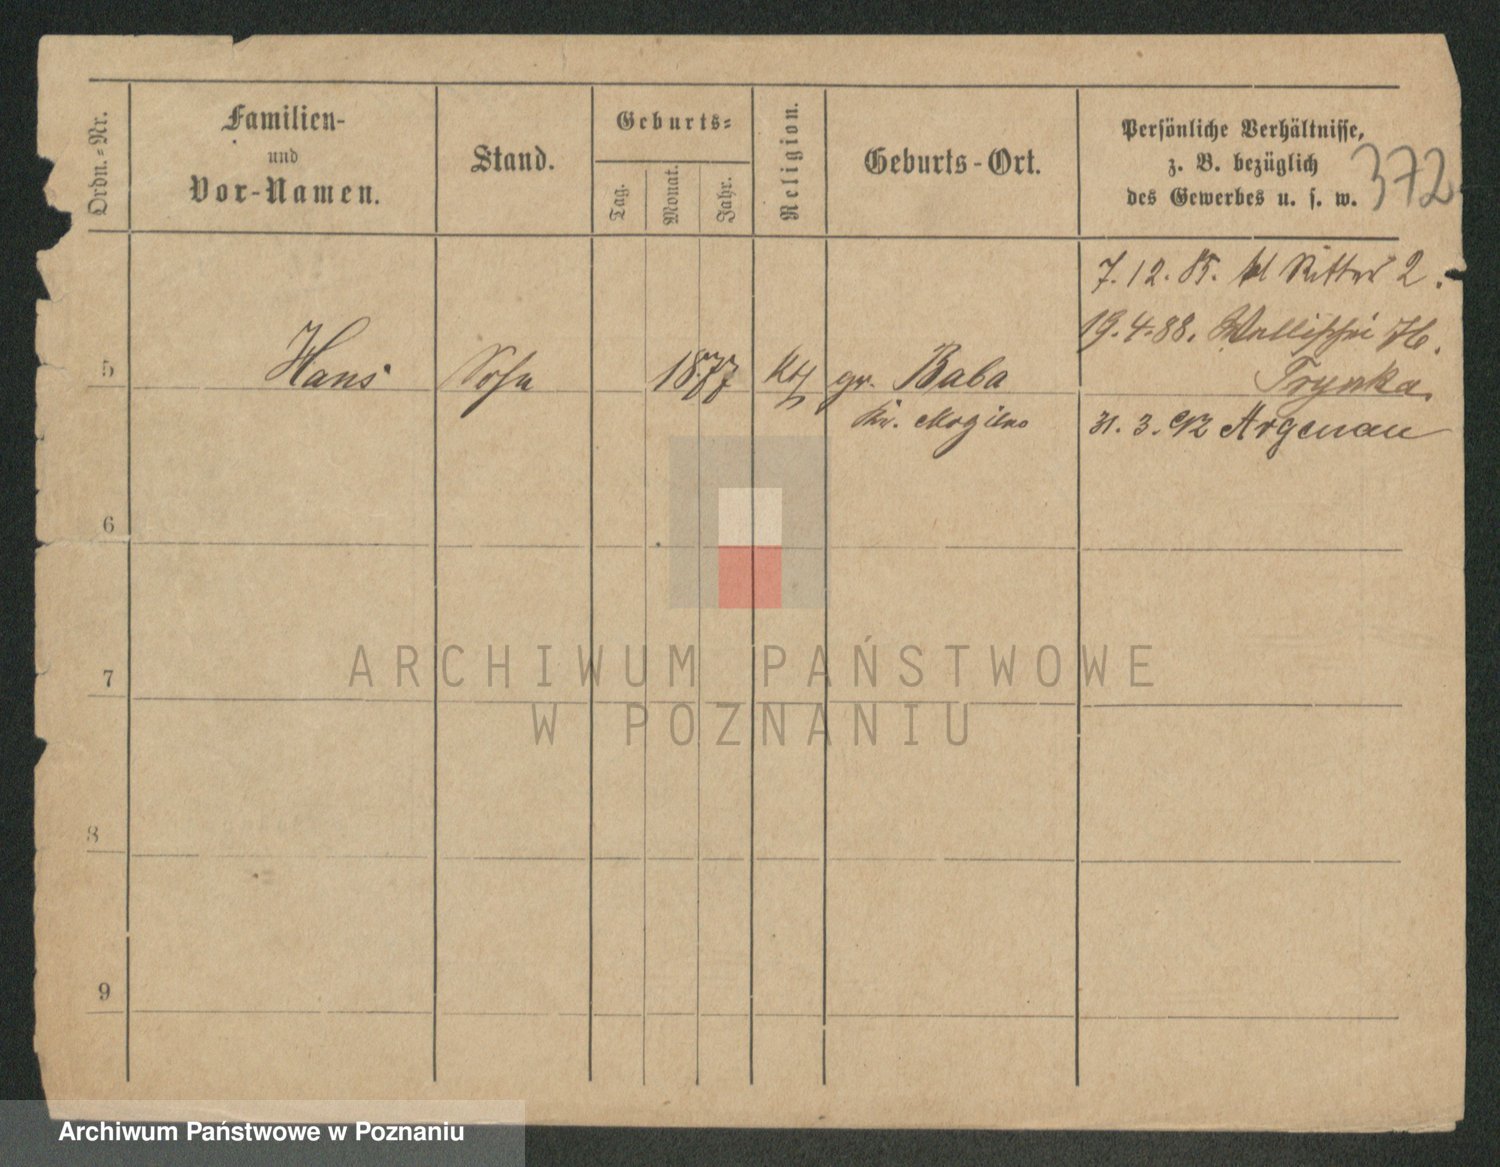 Ordn.-Nr.
Familien-
und
Vor-Namen.
Stand.
Geburts-
Tag.
Monat.
Jahr.
Religion.
Geburts-Ort.
Persönliche Verhältnisse,
z. B. bezüglich
des Gewerbes u. s. w.
372
7. 12. 85. kl Ritter 2.
19. 4. 88. Wallischei
5 Hans Sohn 1877 kth gr. Baba Trynka.
Kr. Mogilno 31. 3. 92 Argenau
6
7
8
9
ARCHIWUM PAŃSTWOWE
W POZNANIU
Archiwum Państwowe w Poznaniu